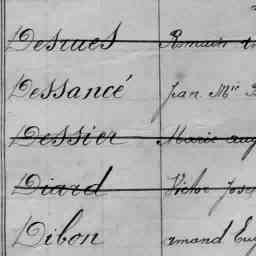 Desrues Romain
Dessancé Jean Mie
Dessier Marie Aug
Diard Victor Jose
Dibon Armand Eug